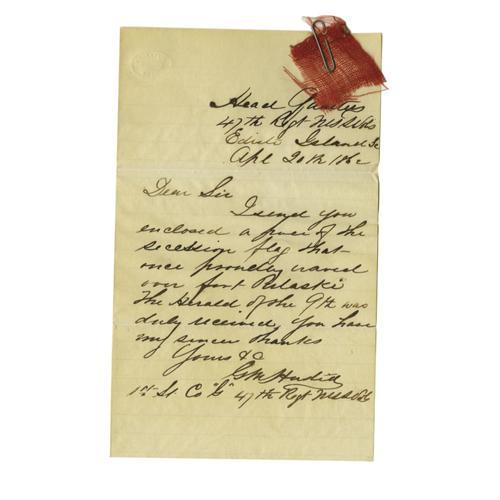 Head Quarters
47th Regt
Edisto Island S.C.
Apl 20th 186
Dear Sir
I send you
enclosed a piece of the
secession flag that
once proudly waved
over fort Pulaski
The Herald of the 9th was
duly received, you have
my sincer thanks
Yours &c
1st Lt Co "G" 47th Regt